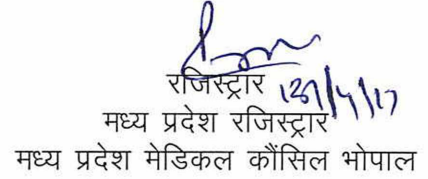 रजिस्ट्रार
मध्य प्रदेश रजिस्ट्रार
मध्य प्रदेश मेडिकल कौंसिल भोपाल